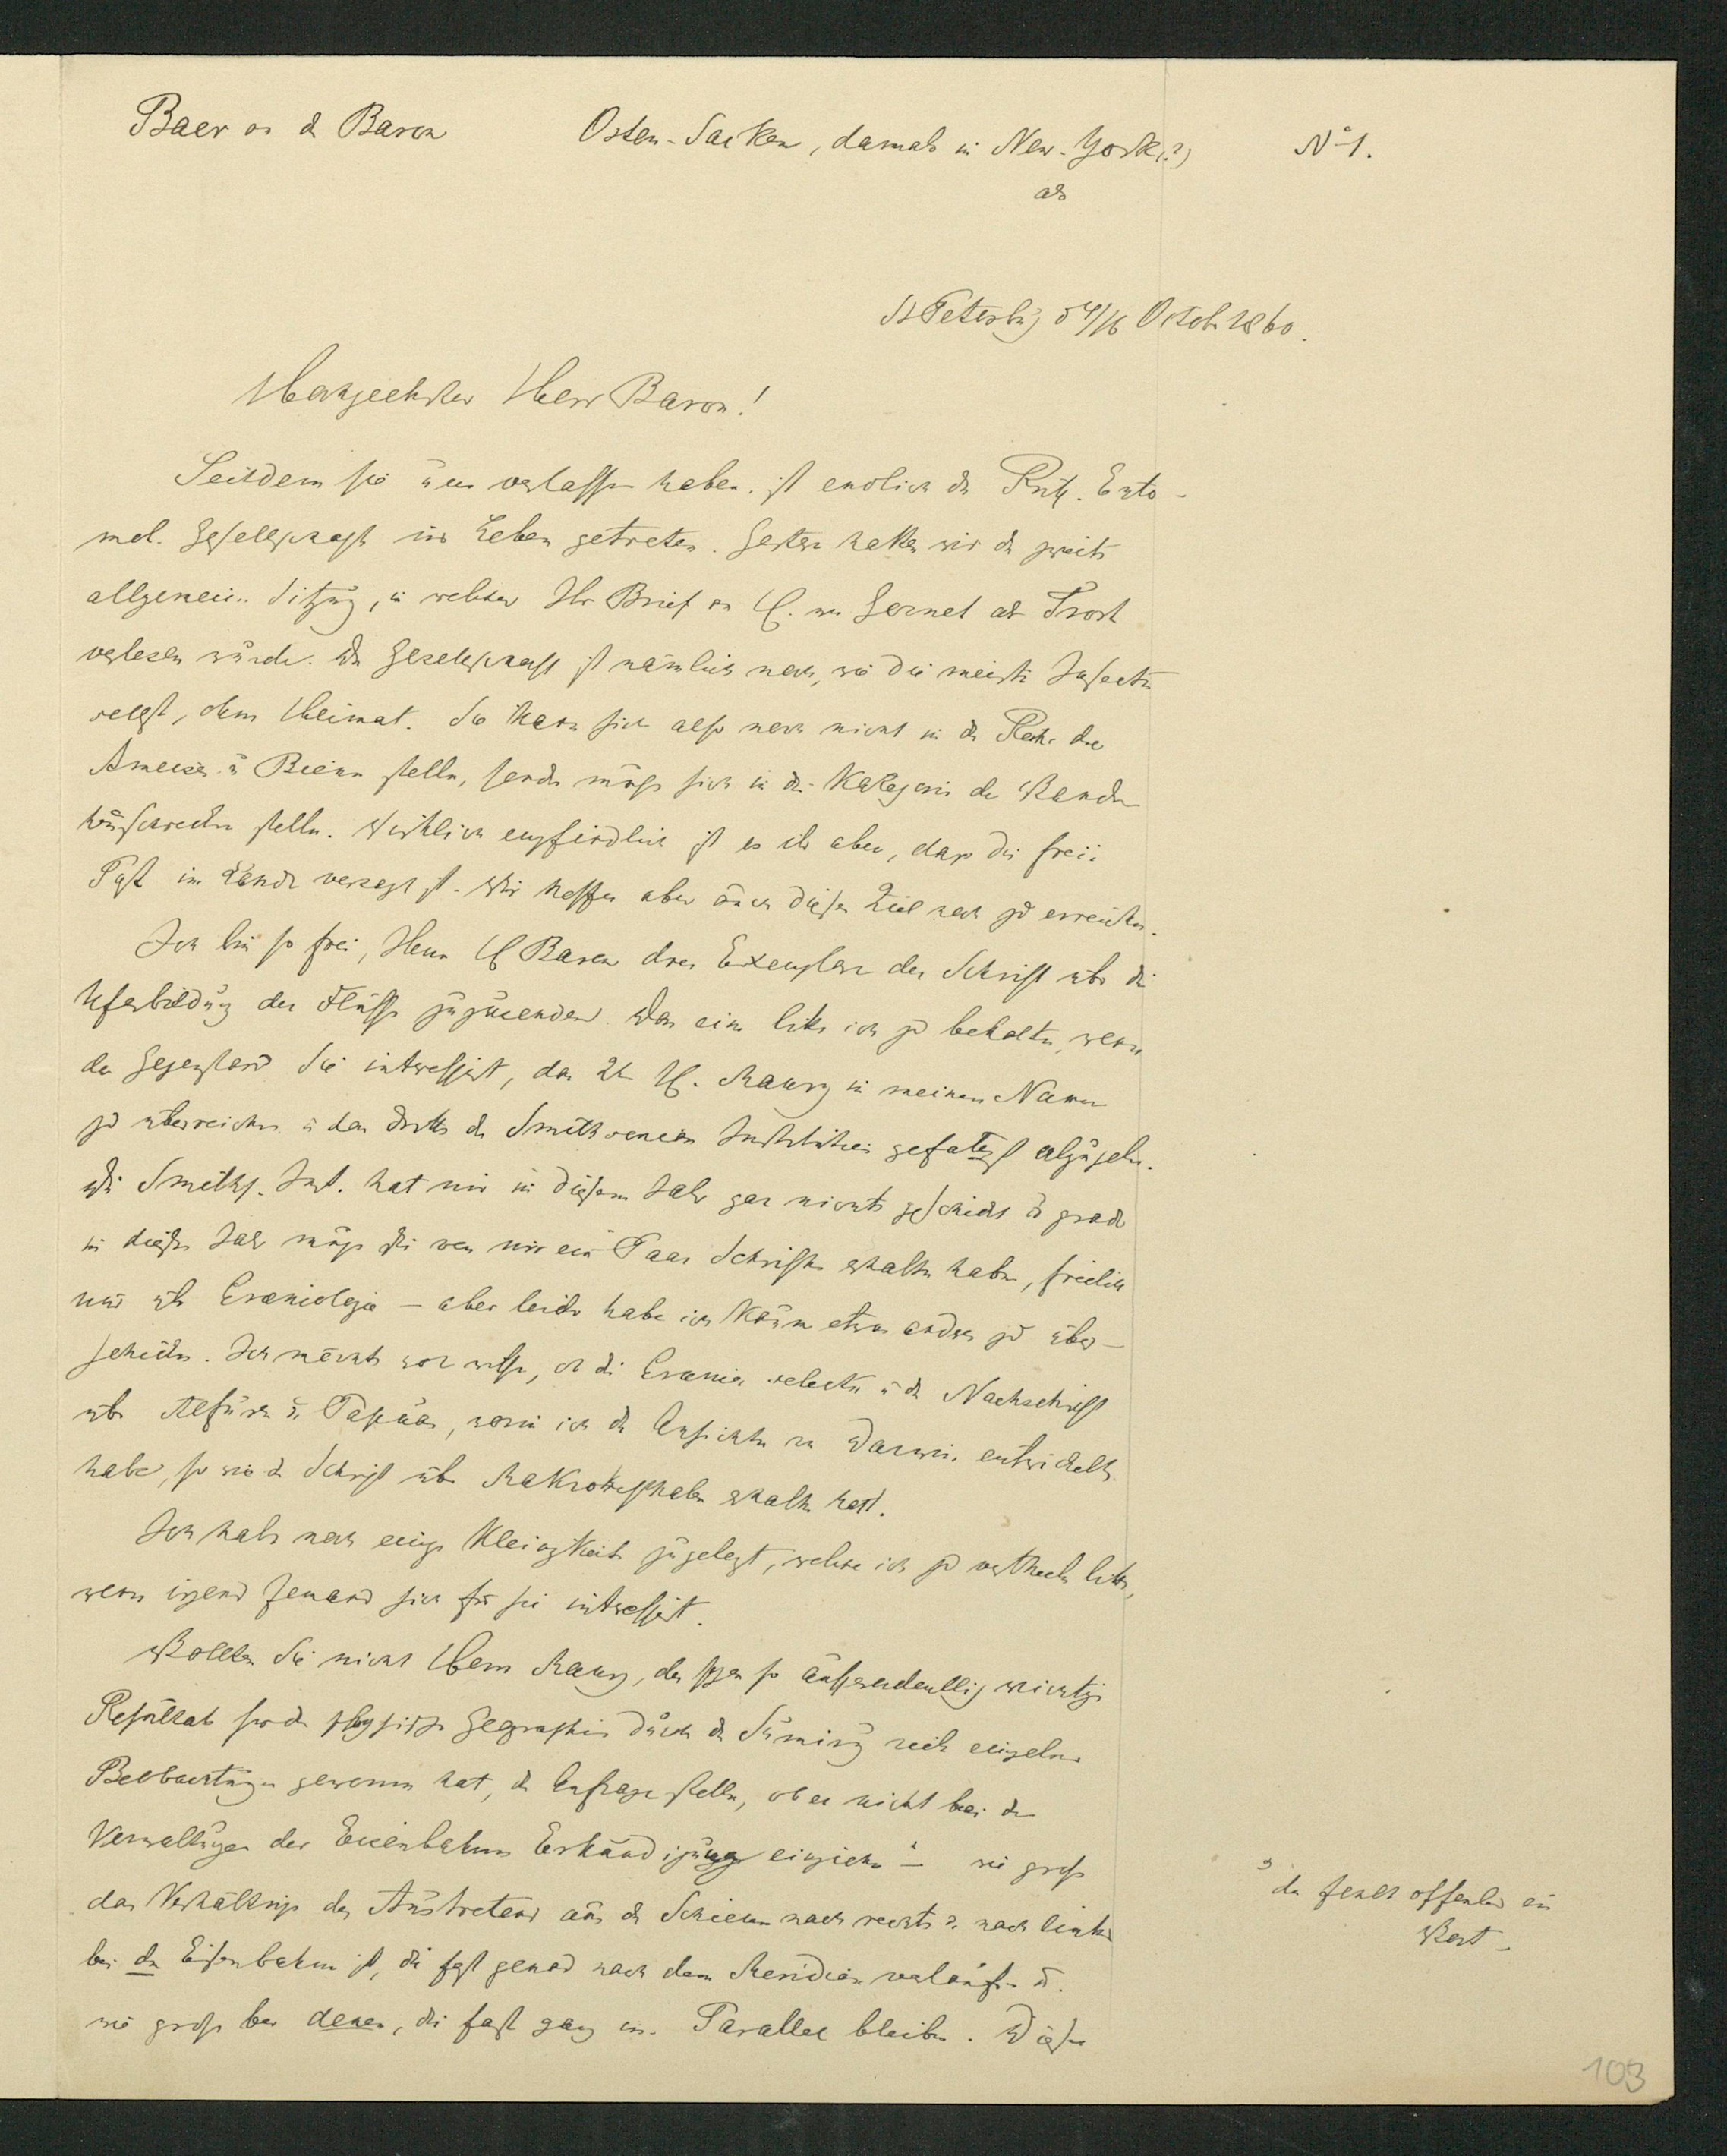 Baer an d Baron Osten-Sacken, damals in New-York (?) No 1.
als
St Petersbg d 4/16 Octob 1860.
Hochgeehrter Herr Baron!
Seitdem sie uns verlassen haben, ist endlich die Russ. Ento-
mol. Gesellschaft ins Leben getreten. Gestern hatten wir die zweite
allgemein. Sitzung, in welcher Ihr Brief an H. von Gernet als Trost
verlesen wurde. Die Gesellschaft ist nämlich noch, wie die meisten Insecten
selbst, ohne Heimat. Sie kann sich also noch nicht in die Reihe der
Ameisen u Bienen stellen, sondern muss sich in die Kategorie der Wander
heuschrecken stellen. Wirklich empfindlich ist es ihr aber, dass die freie
Post im Lande versagt ist. Wir hoffen aber auch dieses Ziel noch zu erreichen.
Ich bin so frei, Ihnen H Baron drei Exemplare der Schrift über die
Uferbildung der Flüsse zuzusenden. Das eine bitte ich zu behalten, wenn
der Gegenstand Sie interessirt, das 2te H. Maury in meinem Namen
zu überreichen u das dritte der Smithsonian Institution gefaligst abzugeben.
Die Smiths. Inst. hat mir in diesem Jahr gar nichts geschickt u grade
in diesem Jahr muss sie von mir ein Paar Schriften erhalten haben, freilich
nur üb Craniologie — aber leider habe ich kaum etwas anders zu über-
schicken. Ich möchte wol wissen, ob die Crania selecta u die Nachschrift
über Alfuren u. Papuas, worin ich die Ansichten von Darwin entwickelt
habe, so wie d Schrift über Makrokephalen erhalten hat.
Ich habe noch einige Kleinigkeiten zugelegt, welche ich zu vertheilen bitte,
wenn irgend Jemand sich für sie interessirt.
Wollten Sie nicht Herrn Maury, der schon so ausserordentlich wichtige
Resultate für die physische Geographie durch die Sammlung einzelner
Beobachtungen gewonnen hat, die Anfrage stellen, ob er nicht bei den
Verwaltungen der Eisenbahnen Erkundigung einziehen — wie gross
das Verhältniss des Austretens aus den Schienen nach rechts u. nach links
bei den Eisenbahnen ist, die fast genad nach dem Meridian verlaufen u.
wie gross bei denen, die fast ganz im Parallel bleiben. Diese
da fehlt offenbar ein
Wort —
103